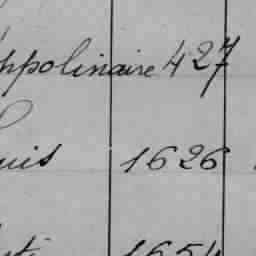 ppolinaire 427
uis 1626
1654